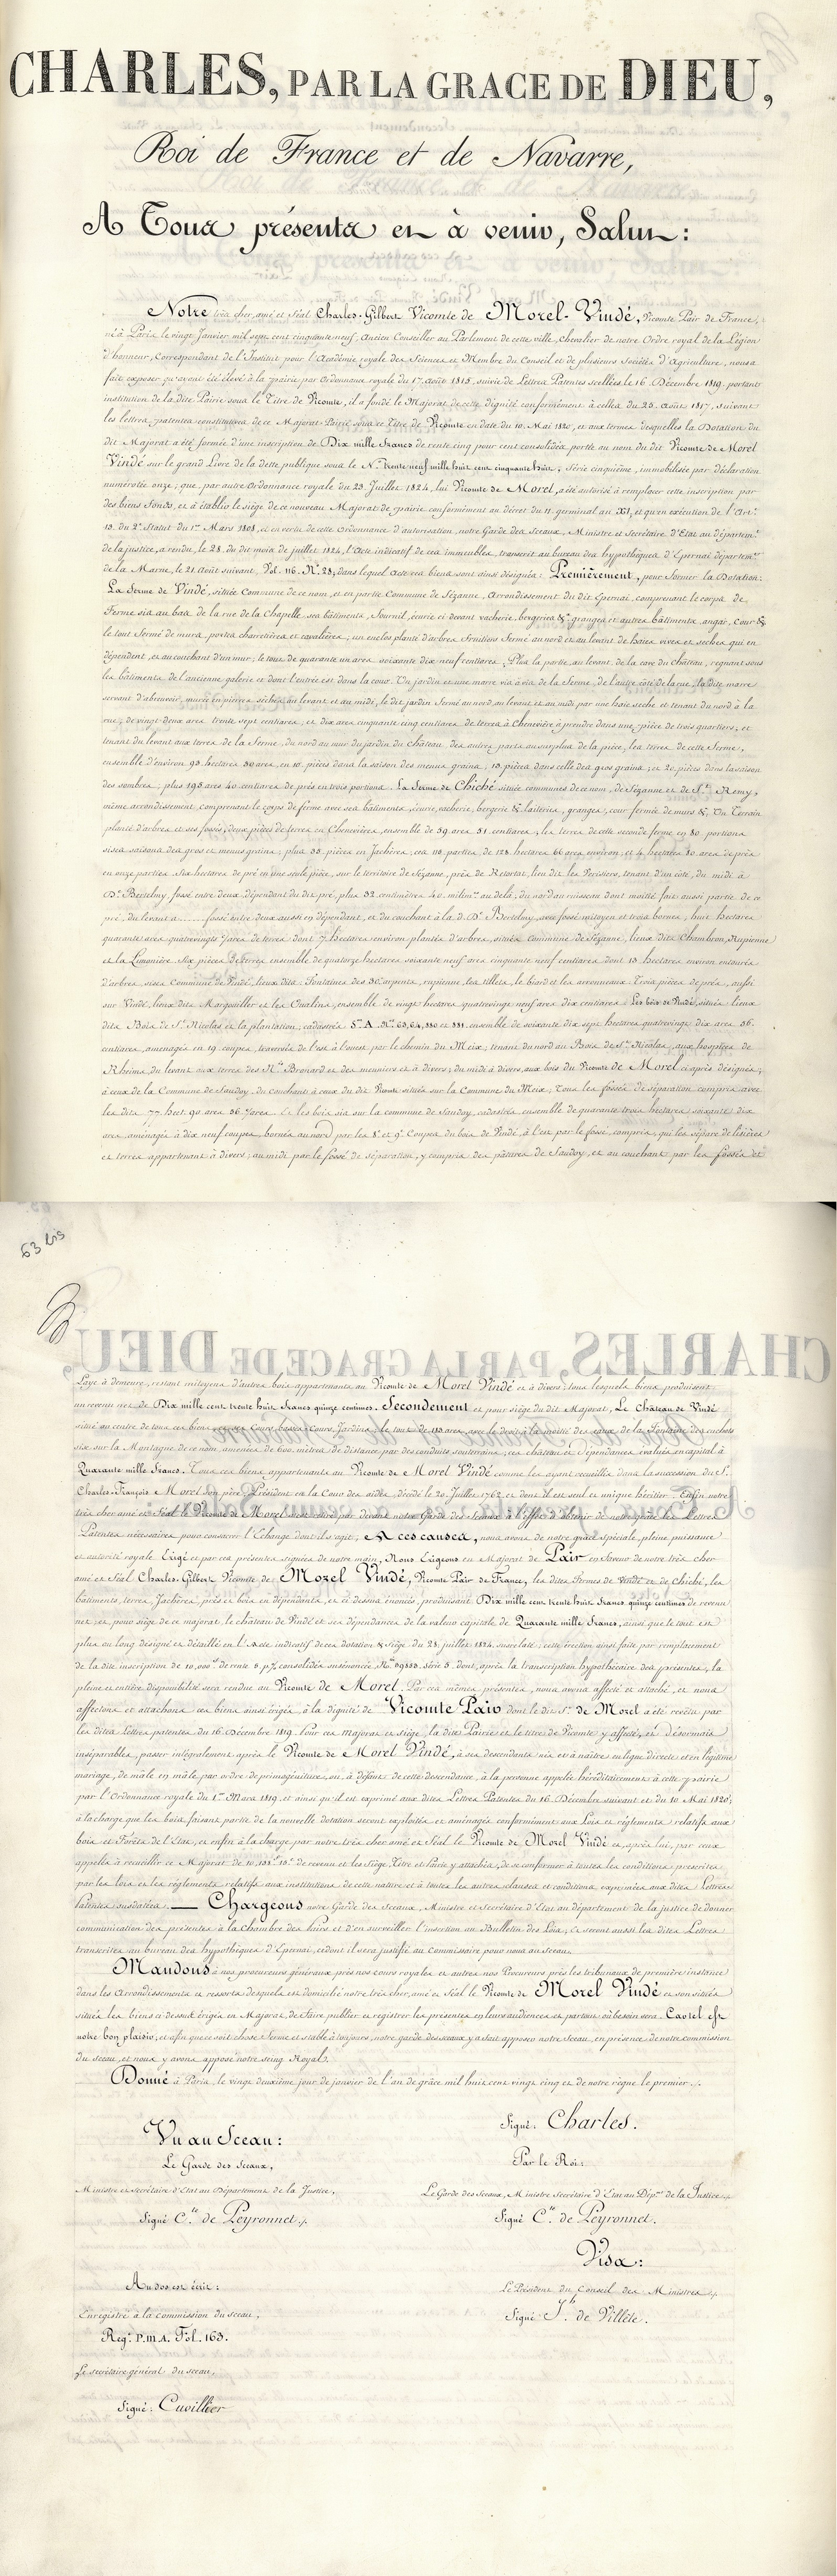 CHARLES, PAR LA GRACE DE DIEU,
Roi de France et de Navarre,
A Tous présents et à venir, Salut :
Notre très cher, amé et féal Charles-Gilbert Vicomte de Morel-Vindé, Vicomte Pair de France,
né à Paris le vingt Janvier mil sept cent cinquante neuf, Ancien Conseiller au Parlement de cette ville, chevalier de notre Ordre royal de la Légion
d'honneur, Correspondant de l'Institut pour l'Académie royale des Sciences et Membre du Conseil et de plusieurs Sociétés d'Agriculture, nous a
fait exposer qu'ayant été élevé à la pairie par Ordonnance royale du 17 Août 1815, suivie de Lettres Patentes scellées le 16 Décembre 1819, portant
institution de la dite Pairie sous le Titre de Vicomte, il a fondé le Majorat de cette dignité conformément à celles du 25 Août 1817, suivant
les lettres patentes constitutives de ce Majorat-Pairie sous ce Titre de Vicomte en date du 10 Mai 1820, et aux termes desquelles la Dotation du
dit Majorat a été formée d'une inscription de Dix mille francs de rente cinq pour cent consolidés portée au nom du dit Vicomte de Morel
Vindé sur le grand Livre de la dette publique sous le N° trente neuf mille huit cent cinquante huit, Série cinquième, immobilisée par déclaration
numérotée onze ; que, par autre Ordonnance royale du 23 Juillet 1824, lui Vicomte de Morel, a été autorisé à remplacer cette inscription par
des biens fonds, et à établir le siège de ce nouveau Majorat de pairie conformément au décret du 11 germinal an XI, et qu'en exécution de l'Art.
13 du 2e Statut du 1er Mars 1808, et en vertu de cette Ordonnance d'autorisation, notre Garde des Sceaux, Ministre et Secrétaire d'Etat au départemt
de la justice, a rendu, le 28 du dit mois de juillet 1824, l'Acte indicatif de ces immeubles, transcrit au bureau des hypothèques d'Epernai départemt
de la Marne, le 21 Août suivant, Vol. 116 N° 28 ; dans lequel acte ces biens sont ainsi désignés : Premièrement, pour former la Dotation :
La ferme de Vindé, située Commune de ce nom, et en partie Commune de Sézanne, Arrondissement du dit Epernai, comprenant le corps de
Ferme sis au bas de la rue de la Chapelle, ses bâtiments, Fournil, écurie ci devant vacherie, bergeries &, granges et autres bâtiments, angar, Cour &
le tout fermé de murs, portes charretières et cavalières ; un enclos planté d'arbres fruitiers fermé au nord et au levant de haies vives et seches qui en
dépendent, et au couchant d'un mur ; le tout de quarante un ares soixante dix neuf centiares ; Plus la partie, au levant, de la cave du Château, regnant sous
les bâtiments de l'ancienne galerie et dont l'entrée est dans la cour. Un jardin et une marre vis à vis de la ferme, de l'autre côté de la rue, la dite marre
servant d'abreuvoir, murée en pierres sèches au levant et au midi, le dit jardin fermé au nord, au levant et au midi par une haie seche et tenant du nord à la
rue ; de vingt-deux ares trente sept centiares ; et dix ares cinquante cinq centiares de terres à Chenevière à prendre dans une pièce de trois quartiers ; et
tenant du levant aux terres de la ferme, du nord au mur du jardin du château, des autres parts au surplus de la pièce, les terres de cette ferme,
ensemble d'environ 93 hectares 30 ares, en 10 pièces dans la saison des menus grains, 13 pièces dans celle des gros grains ; et 20 pièces dans la saison
des sombres ; plus 195 ares 40 centiares de prés en trois portions. La Ferme de Chiché située communes de ce nom, de Sézanne et de St Remy,
même arrondissement, comprenant le corps de ferme avec ses bâtiments, écurie, vacherie, bergerie & laiteries, granges, cour fermée de murs &, Un Terrain
planté d'arbres et ses fossés, deux pièces de terres en Chenevière, ensemble de 59 ares 51 centiares, les terres de cette seconde ferme en 80 portions
sises saisons des gros et menus grains ; plus 35 pièces en Jachères ; ces 115 parties, de 128 hectares 66 ares environ ; et 4 hectares 80 ares de prés
en onze parties. Six hectares de pré en une seule pièce, sur le territoire de Sézanne, près de Retortat, lieu dit les Perisiers, tenant d'un côté, du midi à
D. Bertelmy, fossé entre deux, dépendant du dit pré, plus 32 centimètres 40 milimes au delà ; du nord au ruisseau dont moitié fait aussi partie de ce
pré, du levant à ...... fossé entre deux aussi en dépendant, et du couchant à la d. De Bertelmy, avec fossé mitoyen et trois bornes ; huit hectares
quarante ares quatrevingts 7 ares de terres dont 7 hectares environ plantés d'arbres, situés commune de Sézanne, lieux dits Chambron, Rupienne
et la Limonière. Six pièces de terres ensemble de quatorze hectares soixante neuf ares cinquante neuf centiares dont 13 hectares environ entourés
d'arbres, sises Commune de Vindé, lieux dits : Fontaine des 30 arpents, rupienne, les tillets, le biard et les arronneaux. Trois pièces de prés, aussi
sur Vindé, lieux dits Margouiller et les Oualins, ensemble de vingt hectares quatrevingt neuf ares dix centiares. Les bois de Vindé, situés lieux
dits Bois de St Nicolas et la plantation, cadastrés Son A. Nos 63, 64, 380 et 381, ensemble de soixante dix sept hectares quatrevingt dix ares 36.
centiares, aménagés en 19 coupes, traversés de l'est à l'ouest par le chemin du Meix ; tenant du nord au Bois de St Nicolas, aux hospices de
Rheims, du levant aux terres des Srs Bronard et des meuniers et à divers ; du midi à divers, aux bois du Vicomte de Morel ci après désignés,
à ceux de la Commune de Saudoy, du couchant à ceux du dit Vicomte situés sur la Commune du Meix ; Tous les fossés de séparation compris avec
les dits 77 hect. 90 ares 36 centiares. Les bois sis sur la commune de Saudoy, cadastrés ensemble de quarante trois hectares soixante dix
ares, aménagés à dix neuf coupes, bornés au nord par les 8e et 9e Coupes du bois de Vindé, à l'est par le fossé, compris, qui les sépare de lisières
et terres appartenant à divers ; au midi par le fossé de séparation, y compris des pâtures de Saudoy, et au couchant par les fossés et
63 bis
Laye à demeure, restant mitoyens d'autres bois appartenants au Vicomte de Morel Vindé et à divers ; tous lesquels biens produisent
un revenu net de Dix mille cent trente huit francs quinze centimes. Secondement et pour siége du dit Majorat, Le Château de Vindé
situé au centre de tous ces biens avec ses Cours, Fossés, Cours, Jardins ; le tout de 113 ares, avec le droit à la moitié des eaux de la Fontaine des enchots
sise sur la Montagne de ce nom, amenées de 600 mètres de distance par des conduits souterrains ; ces château et dépendances évalués en capital à
Quarante mille francs. Tous ces biens appartenants au Vicomte de Morel Vindé comme les ayant recueillis dans la succession du Sr
Charles-François Morel son père, Président en la Cour des aides, décédé le 20 Juillet 1762 et dont il est seul et unique héritier. Enfin notre
très cher amé et féal Vicomte de Morel s'est retiré par devant notre Garde des Sceaux à l'effet d'obtenir de notre grâce les Lettres
Patentes nécessaires pour consacrer l'Echange dont il s'agit ; A ces causes, nous avons de notre grâce spéciale, pleine puissance
et autorité royale Erigé et par ces présentes signées de notre main, Nous Erigeons en Majorat de Pair en faveur de notre très cher
amé et féal Charles-Gilbert Vicomte de Morel Vindé, Vicomte Pair de France, les dites Fermes de Vindé et de Chiché, les
bâtiments, terres, Jachères, prés et bois en dépendants, et ci dessus énoncés, produisant Dix mille cent trente huit francs quinze centimes de revenu
net ; et pour siége de ce majorat, le château de Vindé et ses dépendances de la valeur capitale de Quarante mille francs, ainsi que le tout est
plus au long désigné et détaillé en l'Acte indicatif de ces dotation & Siége du 28 juillet 1824 susrelaté ; cette érection ainsi faite par remplacement
de la dite inscription de 10,000f de rente 5 p.% consolidés susénoncée N° 39858 série 5 dont, après la transcription hypothécaire des présentes, la
pleine et entière disponibilité sera rendue au Vicomte de Morel. Par ces mêmes présentes, nous avons affecté et attaché, et nous
affectons et attachons ces biens ainsi érigés à la dignité de Vicomte Pair dont le dit Sr de Morel a été revêtu par
les dites Lettres patentes du 16 Décembre 1819. Pour ces Majorat et Siége, la dite Pairie et le titre de Vicomte y affecté, et désormais
inséparables, passer intégralement après le Vicomte de Morel Vindé, à ses descendants nés et à naître en ligne directe et en légitime
mariage, de mâle en mâle par ordre de primogéniture, ou, à défaut de cette descendance, à la personne appelée héréditairement à cette pairie
par l'Ordonnance royale du 1er Mars 1819, et ainsi qu'il est exprimé aux dites Lettres Patentes du 16 Décembre suivant et du 10 Mai 1820 ;
à la charge que les bois faisant partie de la nouvelle dotation seront exploités et aménagés conformément aux Lois et réglements relatifs aux
bois et Forêts de l'Etat, et enfin à la charge par notre très cher amé et féal le Vicomte de Morel Vindé et, après lui, par ceux
appelés à recueillir ce Majorat de 10,138f 15c de revenu et les Siége, Titre et Pairie y attachés, de se conformer à toutes les conditions prescrites
par les lois et les réglements relatifs aux institutions de cette nature et à toutes les autres clauses et conditions exprimées aux dites Lettres
Patentes susdatées. — Chargeons notre Garde des Sceaux, Ministre et Secrétaire d'Etat au département de la justice de donner
communication des présentes à la Chambre des Pairs et d'en surveiller l'insertion au Bulletin des Lois, Et seront aussi les dites Lettres
transcrites au bureau des hypothèques d'Epernai, ce dont il sera justifié au Commissaire pour nous au Sceau.
Mandons à nos procureurs généraux près nos cours royales et autres nos Procureurs près les tribunaux de première instance
dans les Arrondissements et ressorts desquels est domicilié notre très cher, amé et féal le Vicomte de Morel Vindé et sont situés
situés les biens ci-dessus érigés en Majorat, de faire publier et registrer les présentes en leurs audiences et partout où besoin sera. Car tel est
notre bon plaisir ; et afin que ce soit chose ferme et stable à toujours, notre garde des sceaux y a fait apposer notre Sceau, en présence de notre commission
du sceau, et nous y avons apposé notre seing Royal.
Donné à Paris, le vingt deuxième jour de janvier de l'an de grâce mil huit cent vingt cinq et de notre règne le premier ./.
Signé : Charles.
Vu au Sceau :
Par le Roi :
Le Garde des Sceaux,
Ministre et Secrétaire d'Etat au Département de la Justice,
Le Garde des Sceaux, Ministre Secrétaire d'Etat au Dépt de la Justice ./.
Signé Cte de Peyronnet ./.
Signé Cte de Peyronnet.
Visa :
Au dos est écrit :
Le Président du Conseil des Ministres ./.
Enregistré à la Commission du sceau,
Signé Jh de Villèle.
Rege P.M.A. Fol. 163.
Le secrétaire général du sceau,
Signé : Cuvillier